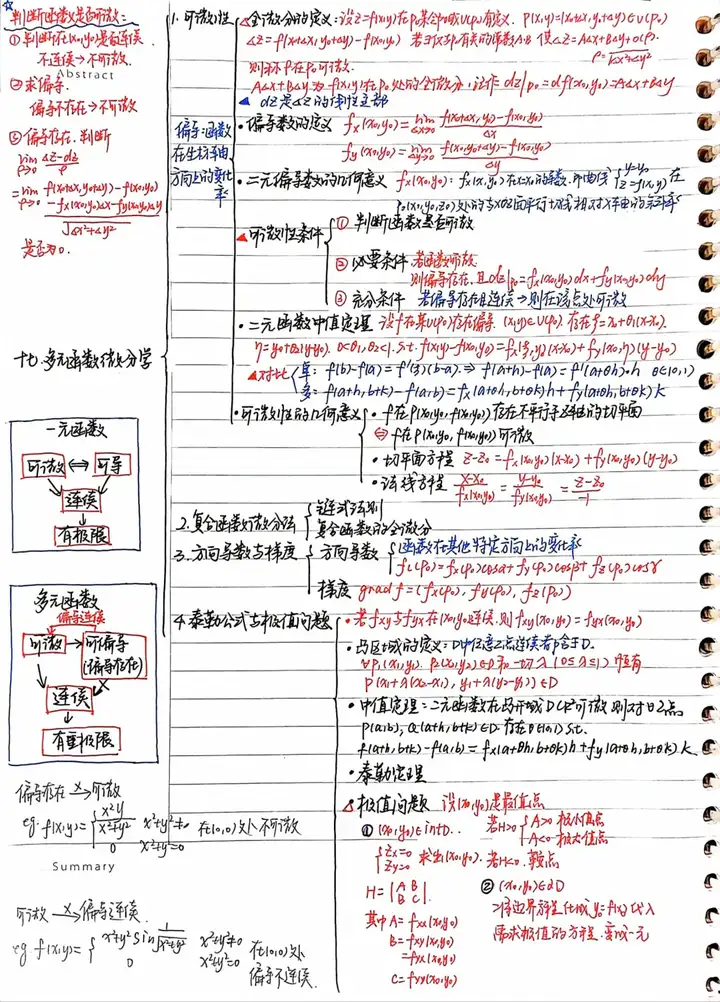 判断函数是否可微:
①判断在(x₀,y₀)是否连续
不连续→不可微.
Abstract
②求偏导.
偏导不存在→不可微
③偏导存在.判断
lim ρ→0 (Δz-dz)/ρ
= lim ρ→0 (f(x₀+Δx,y₀+Δy)-f(x₀,y₀)-fx(x₀,y₀)Δx-fy(x₀,y₀)Δy)/√(Δx²+Δy²)
是否为0.
十七.多元函数微分学
一元函数
可微 ⇔ 可导
连续
有极限
多元函数
偏导连续
可微 → 可偏导(偏导存在)
连续
有重极限
偏导存在 ↛ 可微
eg. f(x,y)={ x²y/(x²+y²) x²+y²≠0
0 x²+y²=0
在(0,0)处不可微
Summary
可微 ↛ 偏导连续.
eg f(x,y)={ x²+y² sin 1/√(x²+y²) x²+y²≠0
0 x²+y²=0
在(0,0)处偏导不连续.
1.可微性
△全微分的定义:设z=f(x,y)在P₀某个P₀域U(P₀)有定义. P(x,y)=(x₀+Δx,y₀+Δy)∈U(P₀)
Δz=f(x₀+Δx,y₀+Δy)-f(x₀,y₀) 若∃仅与P₀有关的常数A.B 使Δz=AΔx+BΔy+o(ρ).
ρ=√(Δx²+Δy²)
则称f在P₀可微.
AΔx+BΔy为f(x,y)在P₀处的全微分,记作dz|P₀=df(x₀,y₀)=AΔx+BΔy
▲dz是Δz的线性主部
偏导:函数在坐标轴方向上的变化率
·偏导数的定义 fx(x₀,y₀)=lim Δx→0 (f(x₀+Δx,y₀)-f(x₀,y₀))/Δx
fy(x₀,y₀)=lim Δy→0 (f(x₀,y₀+Δy)-f(x₀,y₀))/Δy
·二元偏导数的几何意义 fx(x₀,y₀):fx(x,y₀)在x=x₀的导数.即曲线{y=y₀ z=f(x,y)在
P₀(x₀,y₀,z₀)处的与xoz面平行切线相对x轴的斜率
▲可微性条件
①判断函数是否可微
②必要条件 若函数可微.
则偏导存在,且dz|P₀=fx(x₀,y₀)dx+fy(x₀,y₀)dy
③充分条件 若偏导存在且连续→则在该点处可微
·二元函数中值定理 设f在某U(P₀)存在偏导. (x,y)∈U(P₀).存在ξ=x₀+θ₁(x-x₀).
η=y₀+θ₂(y-y₀). 0<θ₁,θ₂<1. s.t. f(x,y)-f(x₀,y₀)=fx(ξ,y)(x-x₀)+fy(x₀,η)(y-y₀)
▲对比{单: f(b)-f(a)=f'(ξ)(b-a).⇒f(a+h)-f(a)=f'(a+θh)·h θ∈(0,1)
多: f(a+h,b+k)-f(a,b)=fx(a+θh,b+θk)h+fy(a+θh,b+θk)k
·可微性的几何意义
·f在P(x₀,y₀,f(x₀,y₀))存在不平行于z轴的切平面
⇔f在P(x₀,y₀,f(x₀,y₀))可微
·切平面方程 z-z₀=fx(x₀,y₀)(x-x₀)+fy(x₀,y₀)(y-y₀)
·法线方程 (x-x₀)/fx(x₀,y₀)=(y-y₀)/fy(x₀,y₀)=(z-z₀)/-1
2.复合函数微分法
链式法则
复合函数的全微分
3.方向导数与梯度
方向导数
函数在其他特定方向上的变化率
fl(P₀)=fx(P₀)cosα+fy(P₀)cosβ+fz(P₀)cosγ
梯度 grad f=(fx(P₀),fy(P₀),fz(P₀))
4.泰勒公式与极值问题
·若fxy与fyx在(x₀,y₀)连续.则fxy(x₀,y₀)=fyx(x₀,y₀)
·凸区域的定义:D中任意2点连线都含于D.
∀P₁(x₁,y₁). P₂(x₂,y₂)∈D和一切λ(0≤λ≤1)恒有
P(x₁+λ(x₂-x₁),y₁+λ(y₂-y₁))∈D
·中值定理:二元函数在凸开域D⊂R²可微.则对∀2点
P(a,b),Q(a+h,b+k)∈D.存在θ∈(0,1)s.t.
f(a+h,b+k)-f(a,b)=fx(a+θh,b+θk)h+fy(a+θh,b+θk)k
·泰勒定理
△极值问题 设(x₀,y₀)是最值点
①(x₀,y₀)∈intD.
{Zx=0 Zy=0 求出(x₀,y₀).
若H>0{A>0 极小值点
A<0 极大值点
若H<0.鞍点
H=|A B
B C|.
其中A=fxx(x₀,y₀)
B=fxy(x₀,y₀)
=fyx(x₀,y₀)
C=fyy(x₀,y₀)
②(x₀,y₀)∈∂D
将边界方程化成y=f(x)代入
需求极值的方程.变成一元